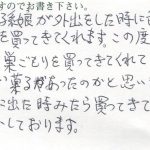 すのでお書き下さい。
孫娘が外出をした時に
を買ってきてくれます。この度
巣ごもりを買ってきてくれて
菓子があったのかと思い
ら出た時みたら買ってきて
しております。